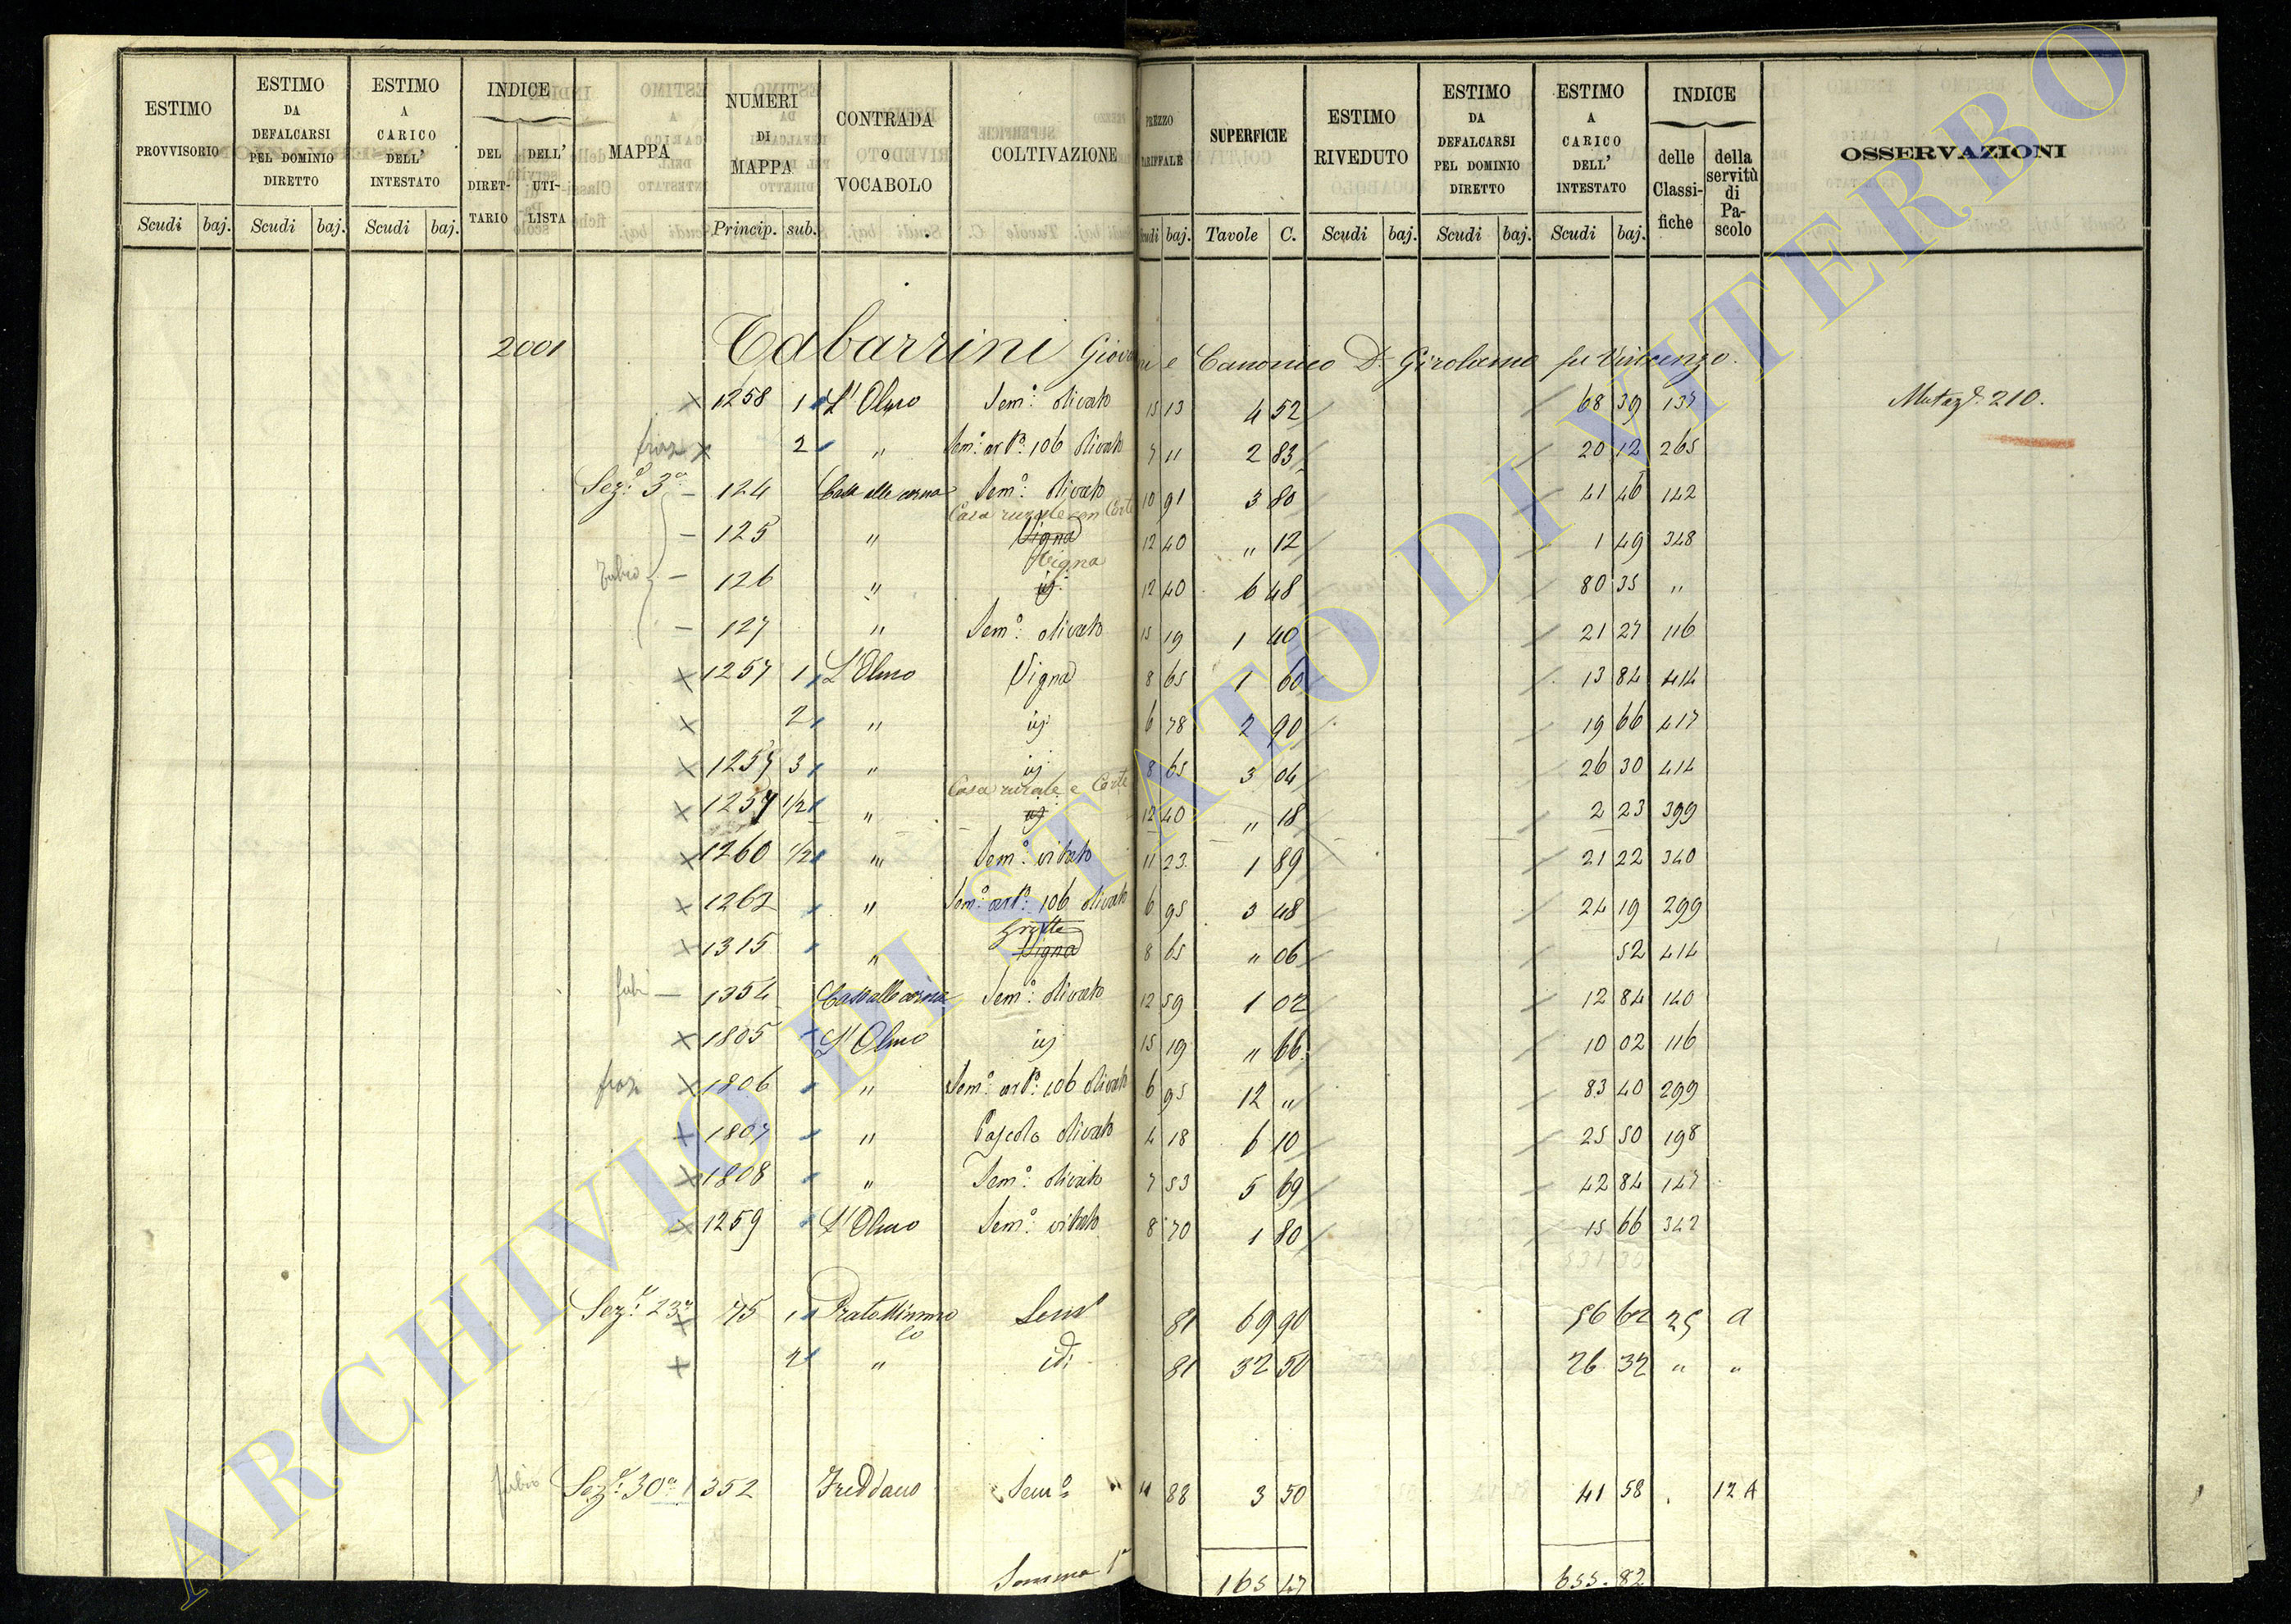 ESTIMO PROVVISORIO Scudi baj.
ESTIMO DA DEFALCARSI PEL DOMINIO DIRETTO Scudi baj.
ESTIMO A CARICO DELL' INTESTATO Scudi baj.
INDICE DEL DIRET-TARIO DELL' UTI-LISTA
MAPPA
NUMERI DI MAPPA Princip. sub.
CONTRADA O VOCABOLO
COLTIVAZIONE
PREZZO TARIFFALE Scudi baj.
SUPERFICIE Tavole C.
ESTIMO RIVEDUTO Scudi baj.
ESTIMO DA DEFALCARSI PEL DOMINIO DIRETTO Scudi baj.
ESTIMO A CARICO DELL' INTESTATO Scudi baj.
INDICE delle Classi-fiche della servitù di Pa-scolo
OSSERVAZIONI
2001 Tabarrini Giovanni e Canonico D. Girolamo fu Vincenzo.
× 1258 1 L'Olmo Sem.° olivato 15 13 4 52 68 39 137 Mutaz.e 210.
× 2 " Sem.° art.° 106 olivato 7 11 2 83 20 12 265
Sez.e 3a – 124 Casa alle corna Sem.° olivato 10 91 3 80 41 46 142
Casa rurale con Corte
– 125 " Vigna 12 40 " 12 1 49 348
Vigna
– 126 " id. 12 40 6 48 80 35 "
– 127 " Sem.° olivato 15 19 1 40 21 27 116
× 1257 1 L'Olmo Vigna 8 65 1 60 13 84 414
× 2 " id. 6 78 2 90 19 66 417
× 1257 3 " id. 8 65 3 04 26 30 414
Casa rurale e Corte
× 1257 1/2 " id. 12 40 " 18 2 23 399
× 1260 1/2 " Sem.° vitato 11 23 1 89 21 22 340
× 1262 " Sem.° art.° 106 olivato 6 95 3 48 24 19 299
Grotta
× 1315 " Vigna 8 65 " 06 52 414
– 1354 Casa alle corna Sem.° olivato 12 59 1 02 12 84 140
× 1805 L'Olmo id. 15 19 " 66 10 02 116
× 1806 " Sem.° art.° 106 olivato 6 95 12 " 83 40 299
× 1807 " Pascolo olivato 4 18 6 10 25 50 198
× 1808 " Sem.° olivato 7 53 5 69 42 84 147
× 1259 L'Olmo Sem.° vitato 8 70 1 80 15 66 342
531 30
Sez.e 23a × 75 1 Sem.° 81 69 90 56 62 25 A
× 2 " id: 81 32 50 26 32 " "
Sez.e 30a 1352 Freddano Sem.° 11 88 3 50 41 58 12 A
Somma 165 47 655.82
ARCHIVIO DI STATO DI VITERBO